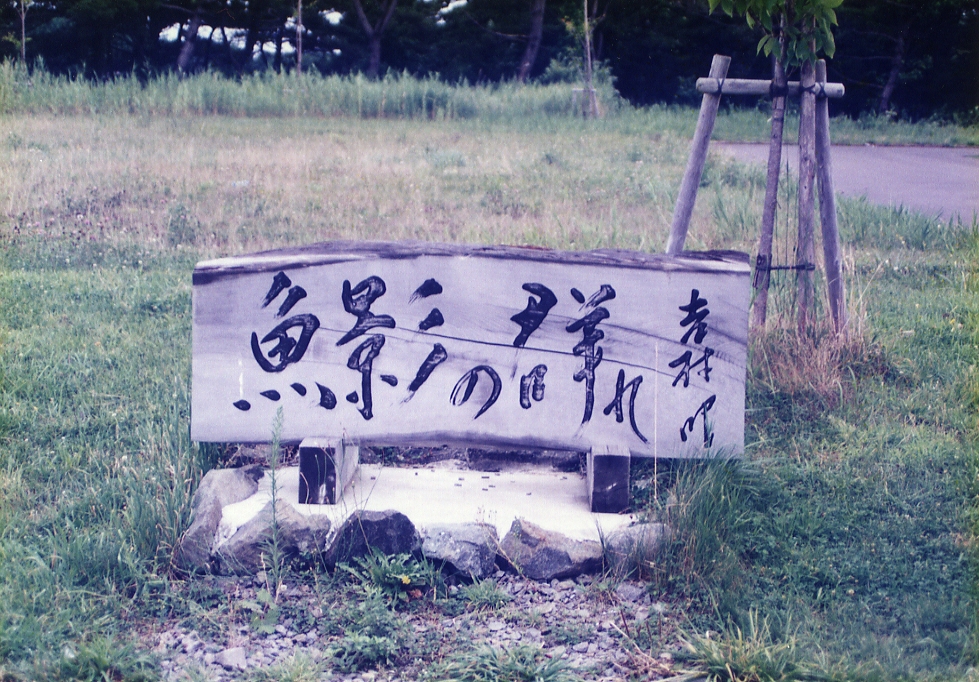 魚影の群れ
吉村昭